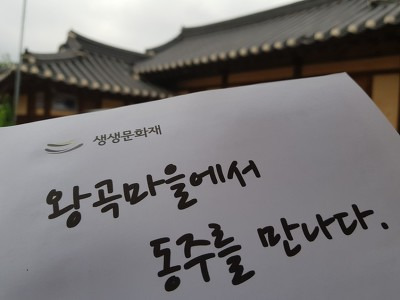 생생문화재
왕곡마을에서
동주를 만나다.